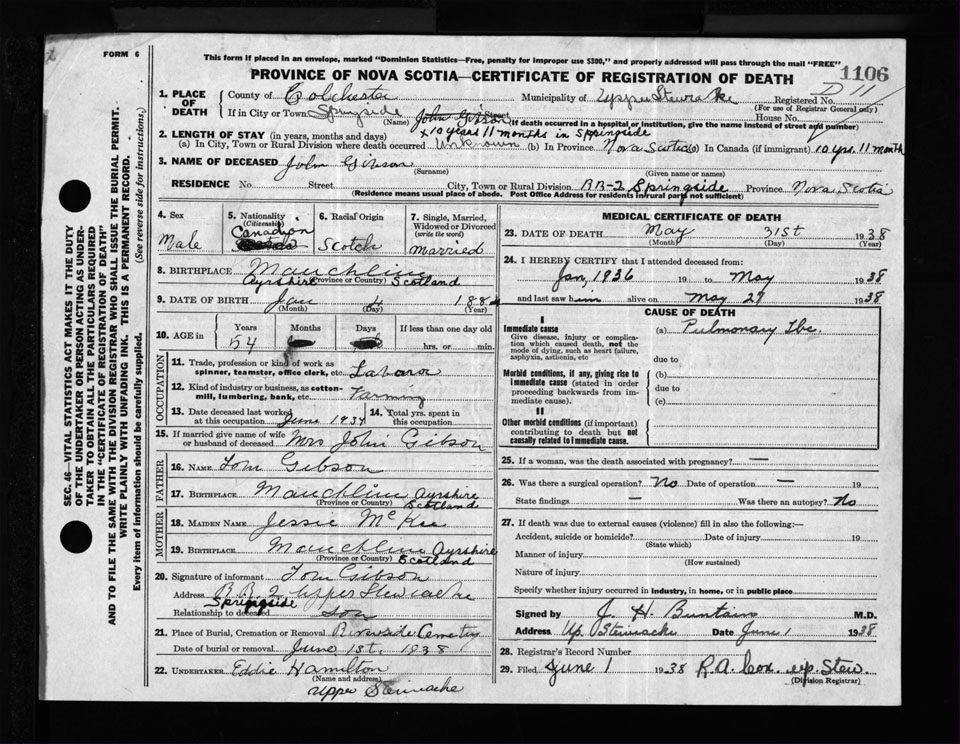 FORM 6
This form if placed in an envelope, marked "Dominion Statistics—Free, penalty for improper use $300," and properly addressed will pass through the mail "FREE"
PROVINCE OF NOVA SCOTIA—CERTIFICATE OF REGISTRATION OF DEATH
1106
D 11
SEC. 46—VITAL STATISTICS ACT MAKES IT THE DUTY
OF THE UNDERTAKER OR PERSON ACTING AS UNDER-
TAKER TO OBTAIN ALL THE PARTICULARS REQUIRED
IN THE "CERTIFICATE OF REGISTRATION OF DEATH"
AND TO FILE THE SAME WITH THE DIVISION REGISTRAR WHO SHALL ISSUE THE BURIAL PERMIT.
WRITE PLAINLY WITH UNFADING INK. THIS IS A PERMANENT RECORD.
Every item of information should be carefully supplied. (See reverse side for instructions.)
1. PLACE OF DEATH
County of Colchester Municipality of Upper Stewiacke Registered No.
(For use of Registrar General only)
If in City or Town Springside Street House No.
(Name) John Gibson (If death occurred in a hospital or institution, give the name instead of street and number)
x 10 years 11 months in Sppingside
2. LENGTH OF STAY (in years, months and days)
(a) In City, Town or Rural Division where death occurred Unknown (b) In Province Nova Scotia (c) In Canada (if immigrant) 10 yrs. 11 month
3. NAME OF DECEASED John Gibson
(Surname) (Given name or names)
RESIDENCE No. Street City, Town or Rural Division RR-2 Springside Province Nova Scotia
(Residence means usual place of abode. Post Office Address for residents in rural parts not sufficient)
4. Sex Male
5. Nationality (Citizenship) Canadian
6. Racial Origin Scotch
7. Single, Married, Widowed or Divorced (write the word) Married
8. BIRTHPLACE Mauchline
Ayrshire (Province or Country) Scotland
9. DATE OF BIRTH Jan 4 1884
(Month) (Day) (Year)
10. AGE in Years 54 Months Days If less than one day old
hrs. or min.
OCCUPATION
11. Trade, profession or kind of work as spinner, teamster, office clerk, etc. Laborer
12. Kind of industry or business, as cotton-mill, lumbering, bank, etc. Farming
13. Date deceased last worked at this occupation June 1937 14. Total yrs. spent in this occupation
15. If married give name of wife or husband of deceased Mrs John Gibson
FATHER
16. NAME Tom Gibson
17. BIRTHPLACE Mauchline Ayrshire
(Province or Country) Scotland
MOTHER
18. MAIDEN NAME Jessie McKie
19. BIRTHPLACE Mauchline Ayrshire
(Province or Country) Scotland
20. Signature of informant Tom Gibson
Address R.R. 2 Upper Stewiacke
Springside
Relationship to deceased Son
21. Place of Burial, Cremation or Removal Riverside Cemetry
Date of burial or removal June 1st, 1938
22. UNDERTAKER Eddie Hamilton
(Name and address)
Upper Stewiacke
MEDICAL CERTIFICATE OF DEATH
23. DATE OF DEATH May 31st 1938
(Month) (Day) (Year)
24. I HEREBY CERTIFY that I attended deceased from:
Jan, 1936 19 to May 1938
and last saw him alive on May 29 1938
CAUSE OF DEATH
I
Immediate cause
Give disease, injury or complica-
tion which caused death, not the
mode of dying, such as heart failure,
asphyxia, asthenia, etc
(a) Pulmonary Tbc.
due to
Morbid conditions, if any, giving rise to
Immediate cause (stated in order
proceeding backwards from im-
mediate cause).
(b)
due to
(c)
II
Other morbid conditions (if important)
contributing to death but not
causally related to immediate cause.
25. If a woman, was the death associated with pregnancy? —
26. Was there a surgical operation? No Date of operation — 19
State findings — Was there an autopsy? No
27. If death was due to external causes (violence) fill in also the following:—
Accident, suicide or homicide? Date of injury 19
(State which)
Manner of injury
(How sustained)
Nature of injury
Specify whether injury occurred in industry, in home, or in public place
Signed by J. H. Buntain M.D.
Address Up. Stewiacke Date June 1 1938
28. Registrar's Record Number
29. Filed June 1 1938 R.A. Cox. up. Stew.
(Division Registrar)